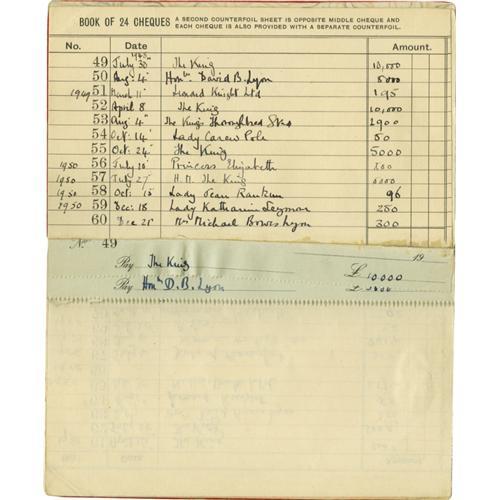 BOOK OF 24 CHEQUES A SECOND COUNTERFOIL SHEET IS OPPOSITE MIDDLE CHEQUE AND
EACH CHEQUE IS ALSO PROVIDED WITH A SEPARATE COUNTERFOIL.
No. Date Amount.
49 July 30 The King 10,000
50 Aug: 4 Honble David B. Lyon 5000
1949 51 March 11 Howard Knight Ltd 195
52 April 8 The King 10,000
53 Aug: 4 The King's Thoroughbred 2900
54 Oct: 14 Lady Carew Pole 50
55 Oct: 24 The King 5000
1950 56 July 10 Princess Elizabeth
1950 57 July 27 H.M. The King
1950 58 Oct: 15 Lady Jean Rankin 96
1950 59 Dec: 18 Lady Katharine Seymour 250
60 Dec 21 Mrs Michael Bowes Lyon 300
No. 49 19
Pay The King £ 10000
Pay Honble D. B. Lyon £